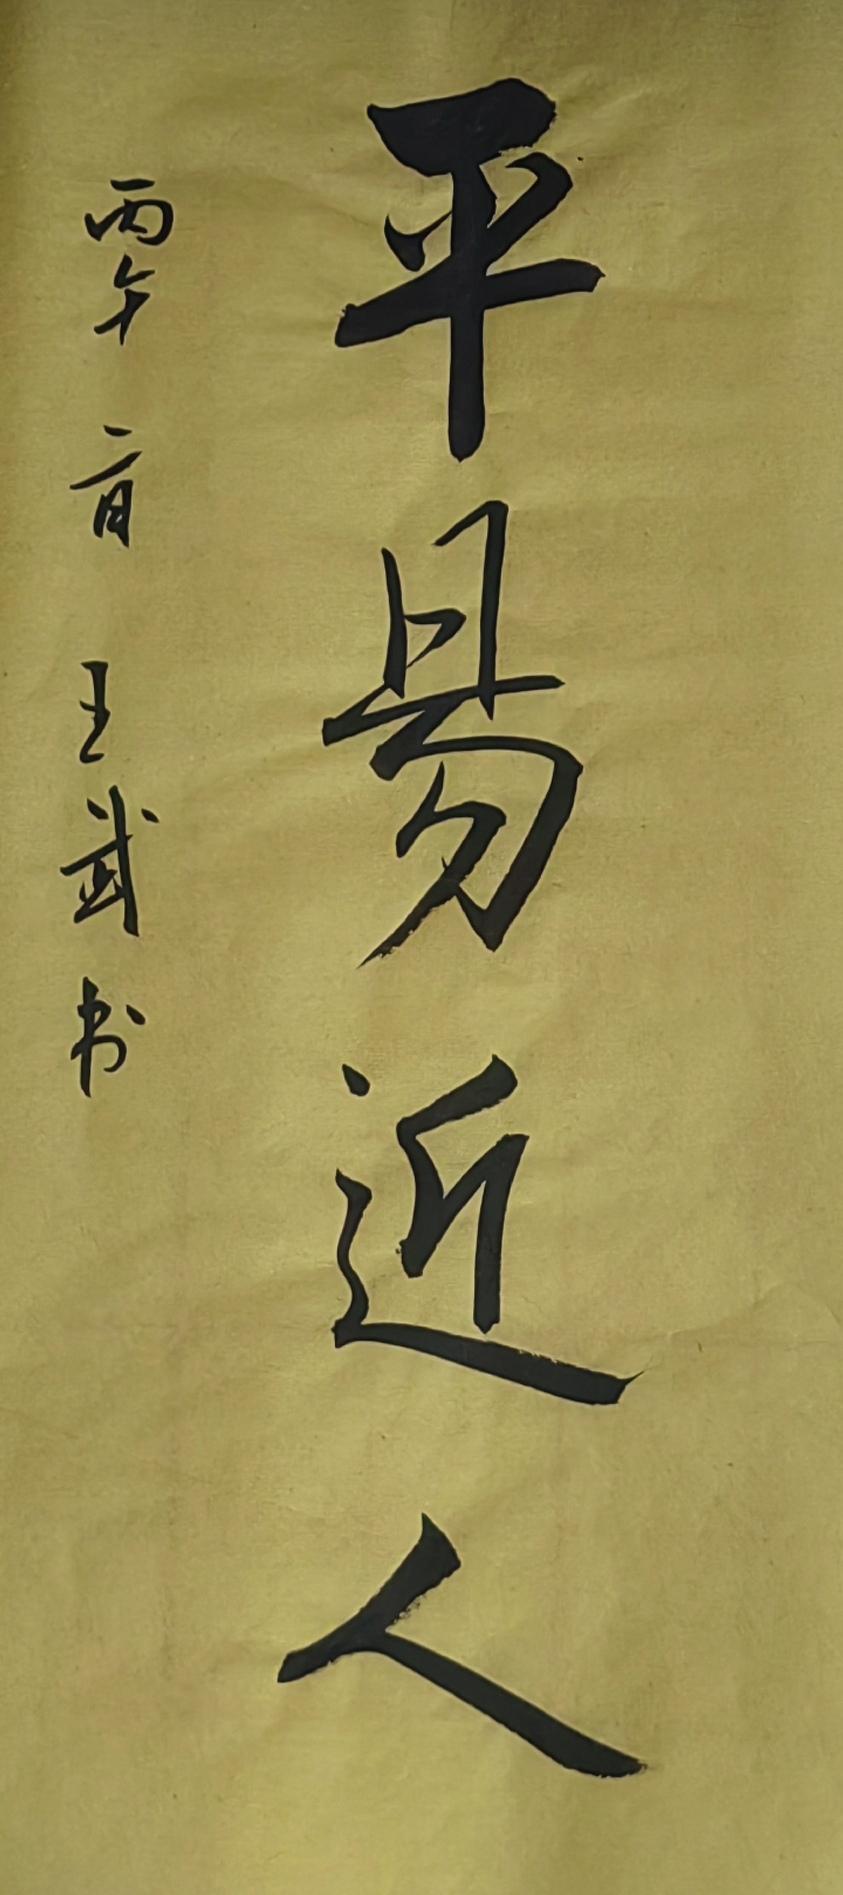 平易近人
丙午二月王武书